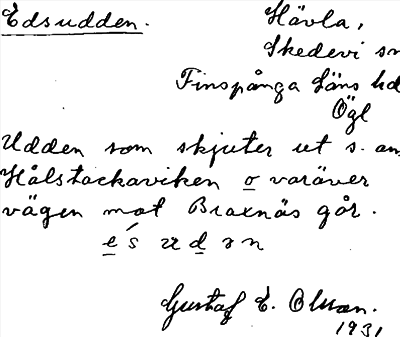 Edsudden.
Hävla,
Skedevi sn
Finspånga läns hd
Ögl
Udden som skjuter ut s. om
Hålstockaviken o varöver
vägen mot Braxnäs går.
Gustaf E. Olsson.
1931